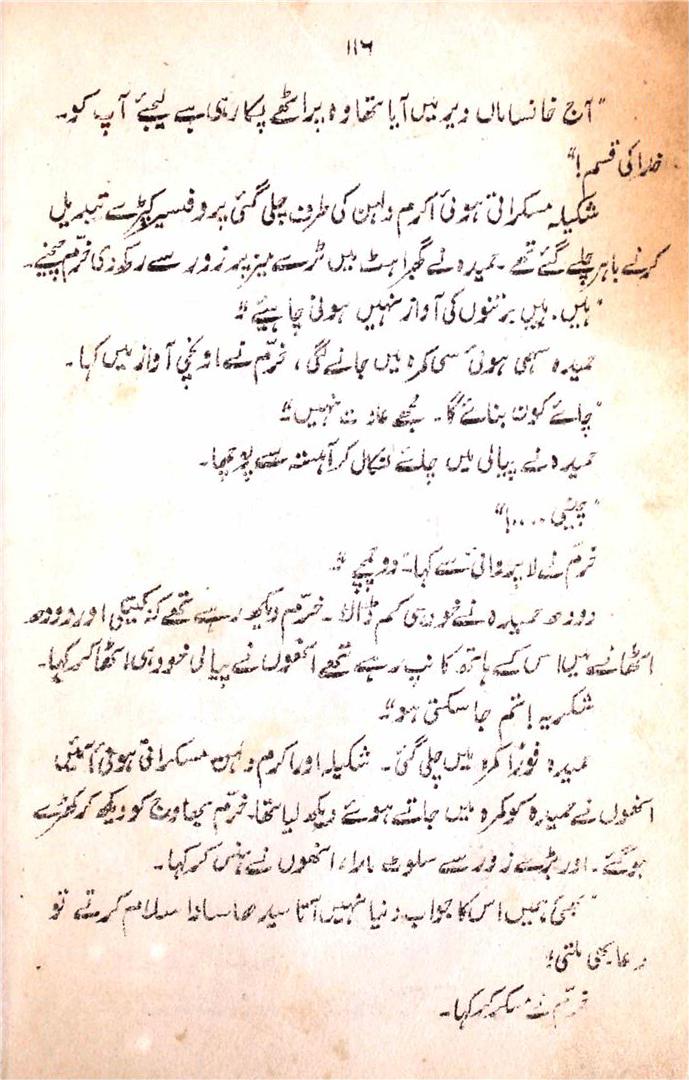 ۱۱۶
"آج خانساماں دیر میں آیا تھا وہ پراٹھے پکا رہی ہے لیجئے آپ کو۔
خدا کی قسم!"
شکیلہ مسکراتی ہوئی اکرم دلہن کی طرف چلی گئی پروفیسر کپڑے تبدیل
کرنے باہر چلے گئے تھے۔ حمیدہ نے گھبراہٹ میں ٹرے میز پر زور سے رکھدی خرّم چیخے۔
"ہیں۔ ہیں برتنوں کی آواز نہیں ہونی چاہیئے"
حمیدہ سہمی ہوئی سی کمرہ میں جانے لگی، خرّم نے اونچی آواز میں کہا۔
"چائے کون بنائے گا۔ مجھے عادت نہیں"
حمیدہ نے پیالی میں چائے نکال کر آہستہ سے پوچھا۔
"چینی ....!"
خرّم نے لاپروائی سے کہا۔ "دو چمچے"
دودھ حمیدہ نے خود ہی کم ڈالا۔ خرّم دیکھ رہے تھے کہ کیتلی اور دودھ
اٹھانے میں اس کے ہاتھ کانپ رہے تھے انھوں نے پیالی خود ہی اٹھا کر کہا۔
شکریہ! تم جا سکتی ہو"
حمیدہ فوراً کمرہ میں چلی گئی۔ شکیلہ اور اکرم دلہن مسکراتی ہوئی آئیں
انھوں نے حمیدہ کو کمرہ میں جاتے ہوئے دیکھ لیا تھا۔ خرّم بھاوج کو دیکھ کر کھڑے
ہو گئے۔ اور بڑے زور سے سلوٹ مارا، انھوں نے ہنس کر کہا۔
"بھئی ہمیں اس کا جواب دینا نہیں آتا سیدھا سادا سلام کرتے تو
دعا بھی ملتی"
خرّم نے مسکرا کر کہا۔